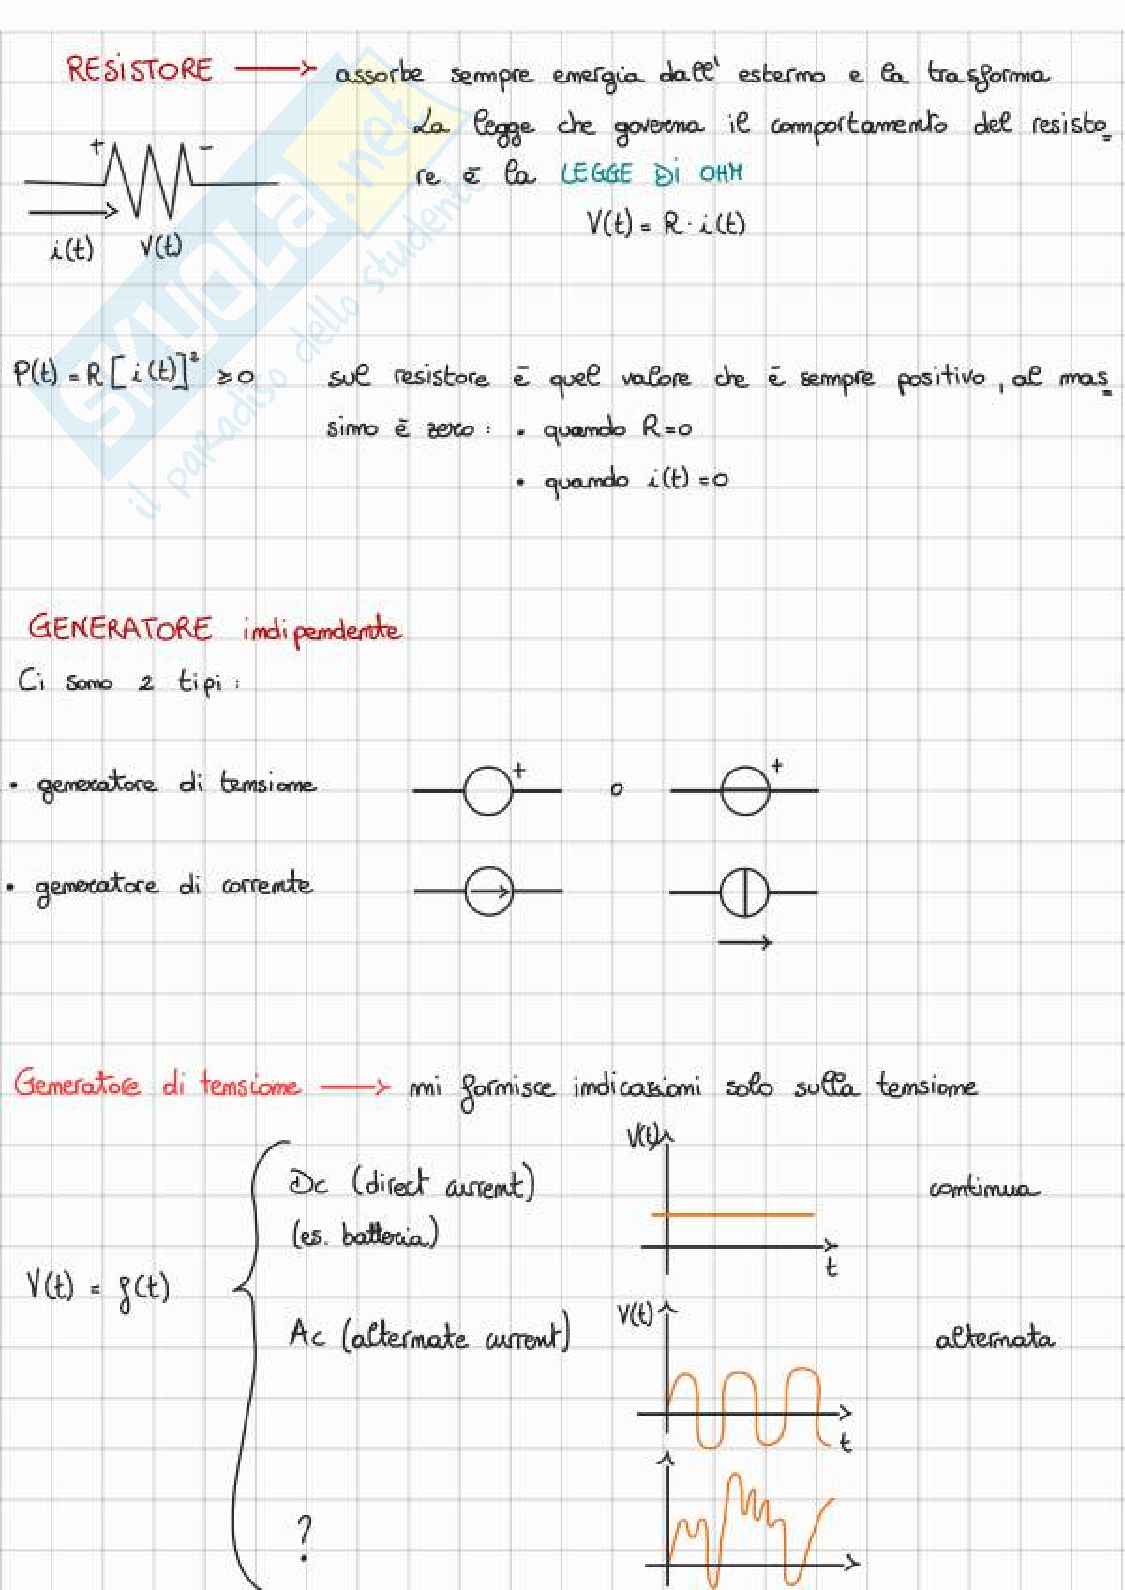 RESISTORE → assorbe sempre energia dall' esterno e la trasforma
La legge che governa il comportamento del resisto
re è la LEGGE Di OHM
+ -
V(t) = R · i(t)
i(t) V(t)
P(t) = R [i(t)]² ≥ 0 sul resistore è quel valore che è sempre positivo, al mas
simo è zero : • quando R=0
• quando i(t) = 0
GENERATORE indipendente
Ci sono 2 tipi :
• generatore di tensione + o +
• generatore di corrente
Generatore di tensione → mi fornisce indicazioni solo sulla tensione
V(t)
Dc (direct current) continua
(es. batteria)
t
V(t) = f(t)
V(t)
Ac (alternate current) alternata
t
?
SKUOLA.net
il paradiso dello studente